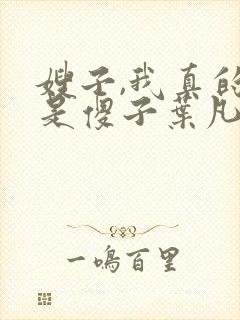 嫂子,我真的
是傻子叶凡
一鸣百里